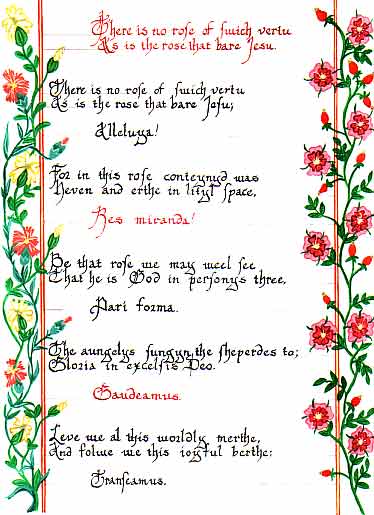 There is no rose of swich vertu
As is the rose that bare Jesu.
There is no rose of swich vertu
As is the rose that bare Jesu;
Alleluya!
For in this rose conteynyd was
Heven and erthe in lityl space,
Res miranda!
Be that rose we may weel see
That he is God in personys three,
Pari forma.
The aungelys sungyn the sheperdes to;
Gloria in excelsis Deo.
Gaudeamus.
Leve we al this worldly merthe,
And folwe we this joyful berthe:
Transeamus.